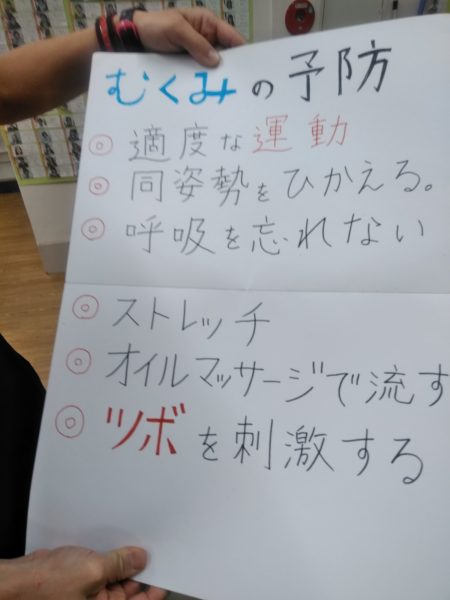 むくみの予防
◎ 適度な運動
◎ 同姿勢をひかえる。
◎ 呼吸を忘れない
◎ ストレッチ
◎ オイルマッサージで流す
◎ ツボを刺激する